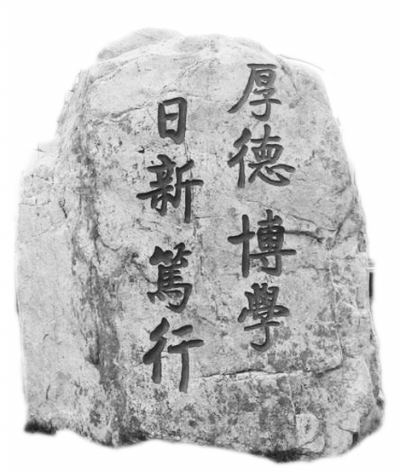 厚德 博學
日新 篤行